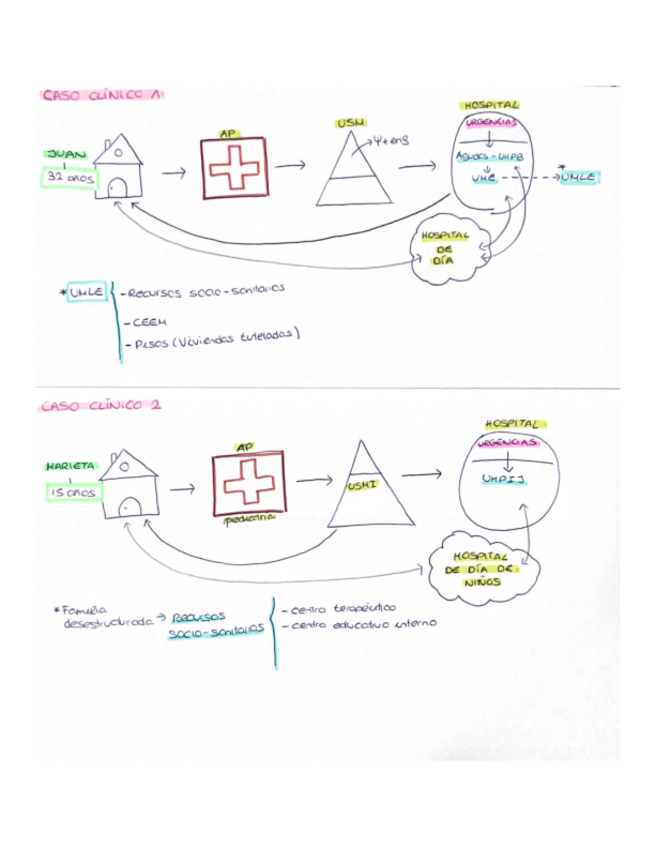 CASO CLÍNICO 1
HOSPITAL
URGENCIAS
USM
AP
ψ+enf
JUAN
32 años
Agudos - UHPB
UME
*
UMLE
HOSPITAL
DE
DÍA
*UMLE
- Recursos socio-sanitarios
- CEEM
- Pisos (Viviendas tuteladas)
CASO CLÍNICO 2
HOSPITAL
URGENCIAS
AP
MARIETA
15 años
USMI
UHPIJ
pediatría
HOSPITAL
DE DÍA DE
NIÑOS
*Familia
desestructurada → RECURSOS
SOCIO-SANITARIOS
- centro terapéutico
- centro educativo interno